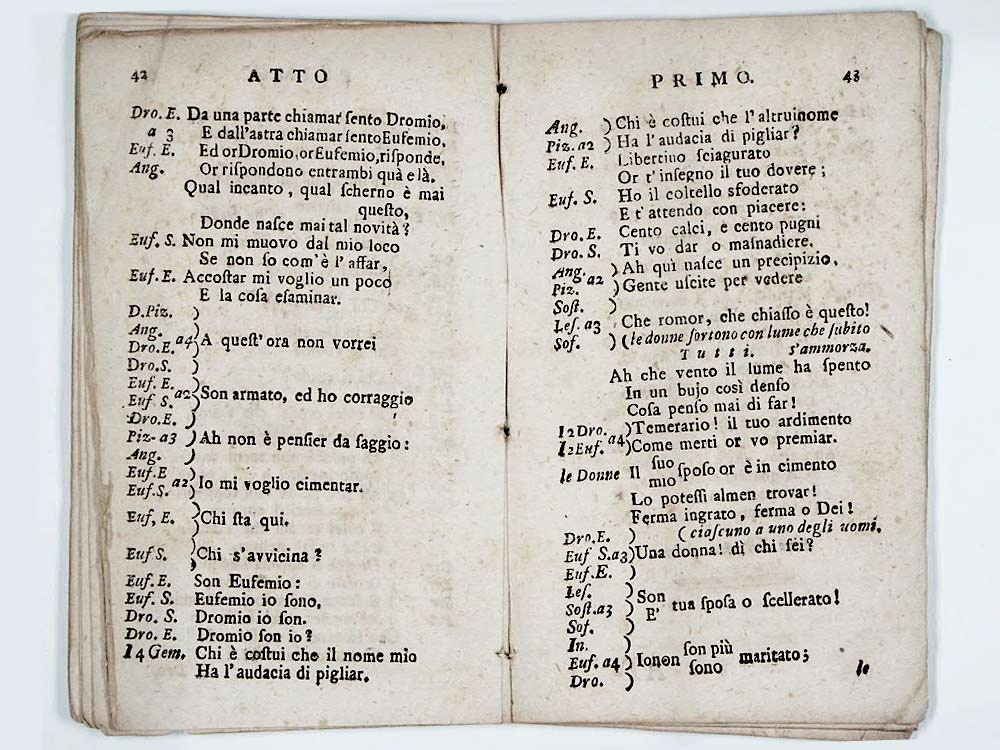 42 ATTO
Dro. E. Da una parte chiamar ſento Dromio,
a 3 E dall'astra chiamar ſento Eufemio,
Euf. E. Ed or Dromio, or Eufemio, riſponde,
Ang. Or riſpondono entrambi quà e là.
Qual incanto, qual ſcherno è mai
queſto,
Donde naſce mai tal novità?
Euf. S. Non mi muovo dal mio loco
Se non ſo com'è l'affar,
Euf. E. Accoſtar mi voglio un poco
E la coſa eſaminar.
D. Piz. )
Ang. )
Dro. E. a4 A queſt'ora non vorrei
Dro. S. )
Euf. E.
Euf. S. a2 Son armato, ed ho corraggio
Dro. E. )
Piz- a3 ) Ah non è penſier da ſaggio:
Ang. )
Euf. E
Euf. S. a2 Io mi voglio cimentar.
Euf, E. Chi ſta qui.
Euf S. Chi s'avvicina?
Euf. E. Son Eufemio:
Euf. S. Eufemio io ſono,
Dro. S. Dromio io ſon.
Dro. E. Dromio ſon io?
I 4 Gem. Chi è coſtui che il nome mio
Ha l'audacia di pigliar.
PRIMO. 43
Ang. ) Chi è coſtui che l'altrui nome
Piz. a2 ) Ha l'audacia di pigliar?
Euf. E. Libertino sciagurato
Or t'inſegno il tuo dovere;
Euf. S. Ho il coltello sfoderato
E t'attendo con piacere:
Dro. E. Cento calci, e cento pugni
Dro. S. Ti vo dar o maſnadiere.
Ang. a2 ) Ah quì naſce un precipizio,
Piz. ) Gente uſcite per vedere
Soſt. )
Leſ. a3 Che romor, che chiaſſo è queſto!
Sof. ) ( le donne ſortono con lume che ſubito
Tutti. s'ammorza.
Ah che vento il lume ha ſpento
In un bujo così denſo
Coſa penſo mai di far!
I 2 Dro. a4 ) Temerario! il tuo ardimento
I 2 Euf. ) Come merti or vo premiar.
le Donne Il ſuo ſpoſo or è in cimento
mio
Lo poteſſi almen trovar!
Ferma ingrato, ferma o Dei!
Dro. E. ) ( ciaſcuno a uno degli uomi.
Euf S. a3 ) Una donna! dì chi ſei?
Euf. E. )
Leſ. )
Soſt. a3 Son tua ſpoſa o ſcellerato!
Sof. ) E'
In. )
Euf. a4 ) Io non ſon più maritato;
Dro. ) ſono
le